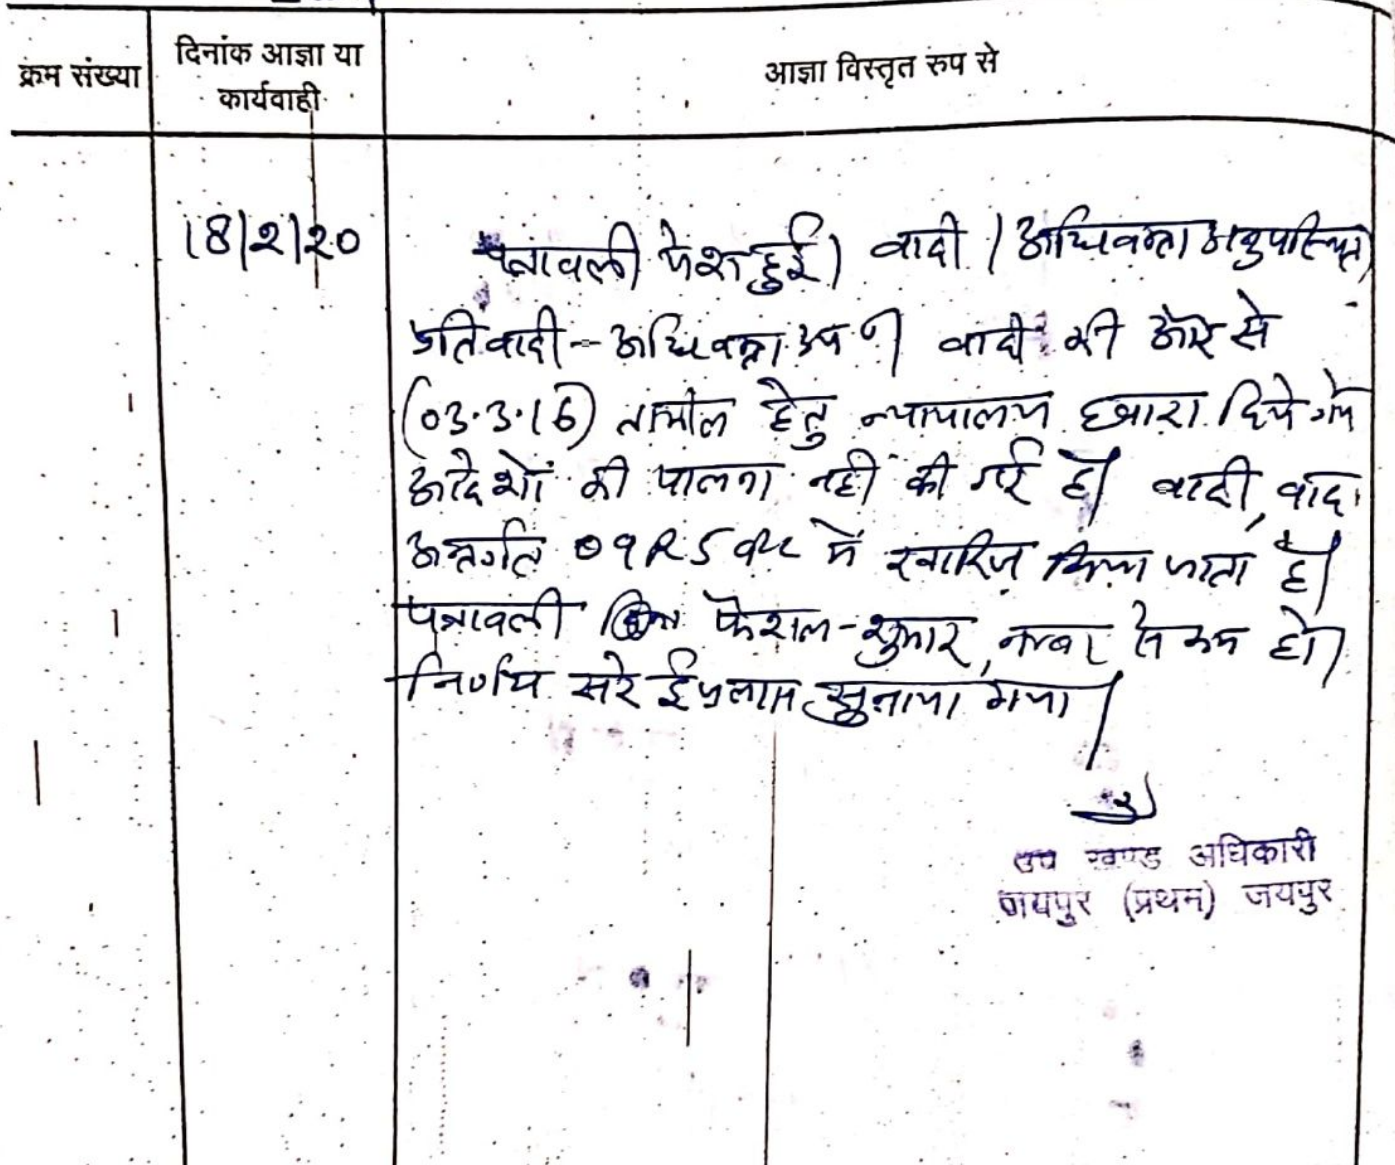 क्रम संख्या
दिनांक आज्ञा या
कार्यवाही
आज्ञा विस्तृत रुप से
18/2/20
पत्रावली पेश हुई। वादी / अधिवक्ता अनुपस्थित
प्रतिवादी-- अधिवक्ता उप०। वादी की ओर से
(03.3.16) तामील हेतु न्यायालय द्वारा दिये गये
आदेशों की पालना नही की गई है। वादी, वाद
अन्तर्गत 09 R5 में खारिज किया जाता है।
पत्रावली फैसल-शुमार, नम्बर से कम हो।
निर्णय सरे ईजलास सुनाया गया।
उप खण्ड अधिकारी
जयपुर (प्रथम) जयपुर